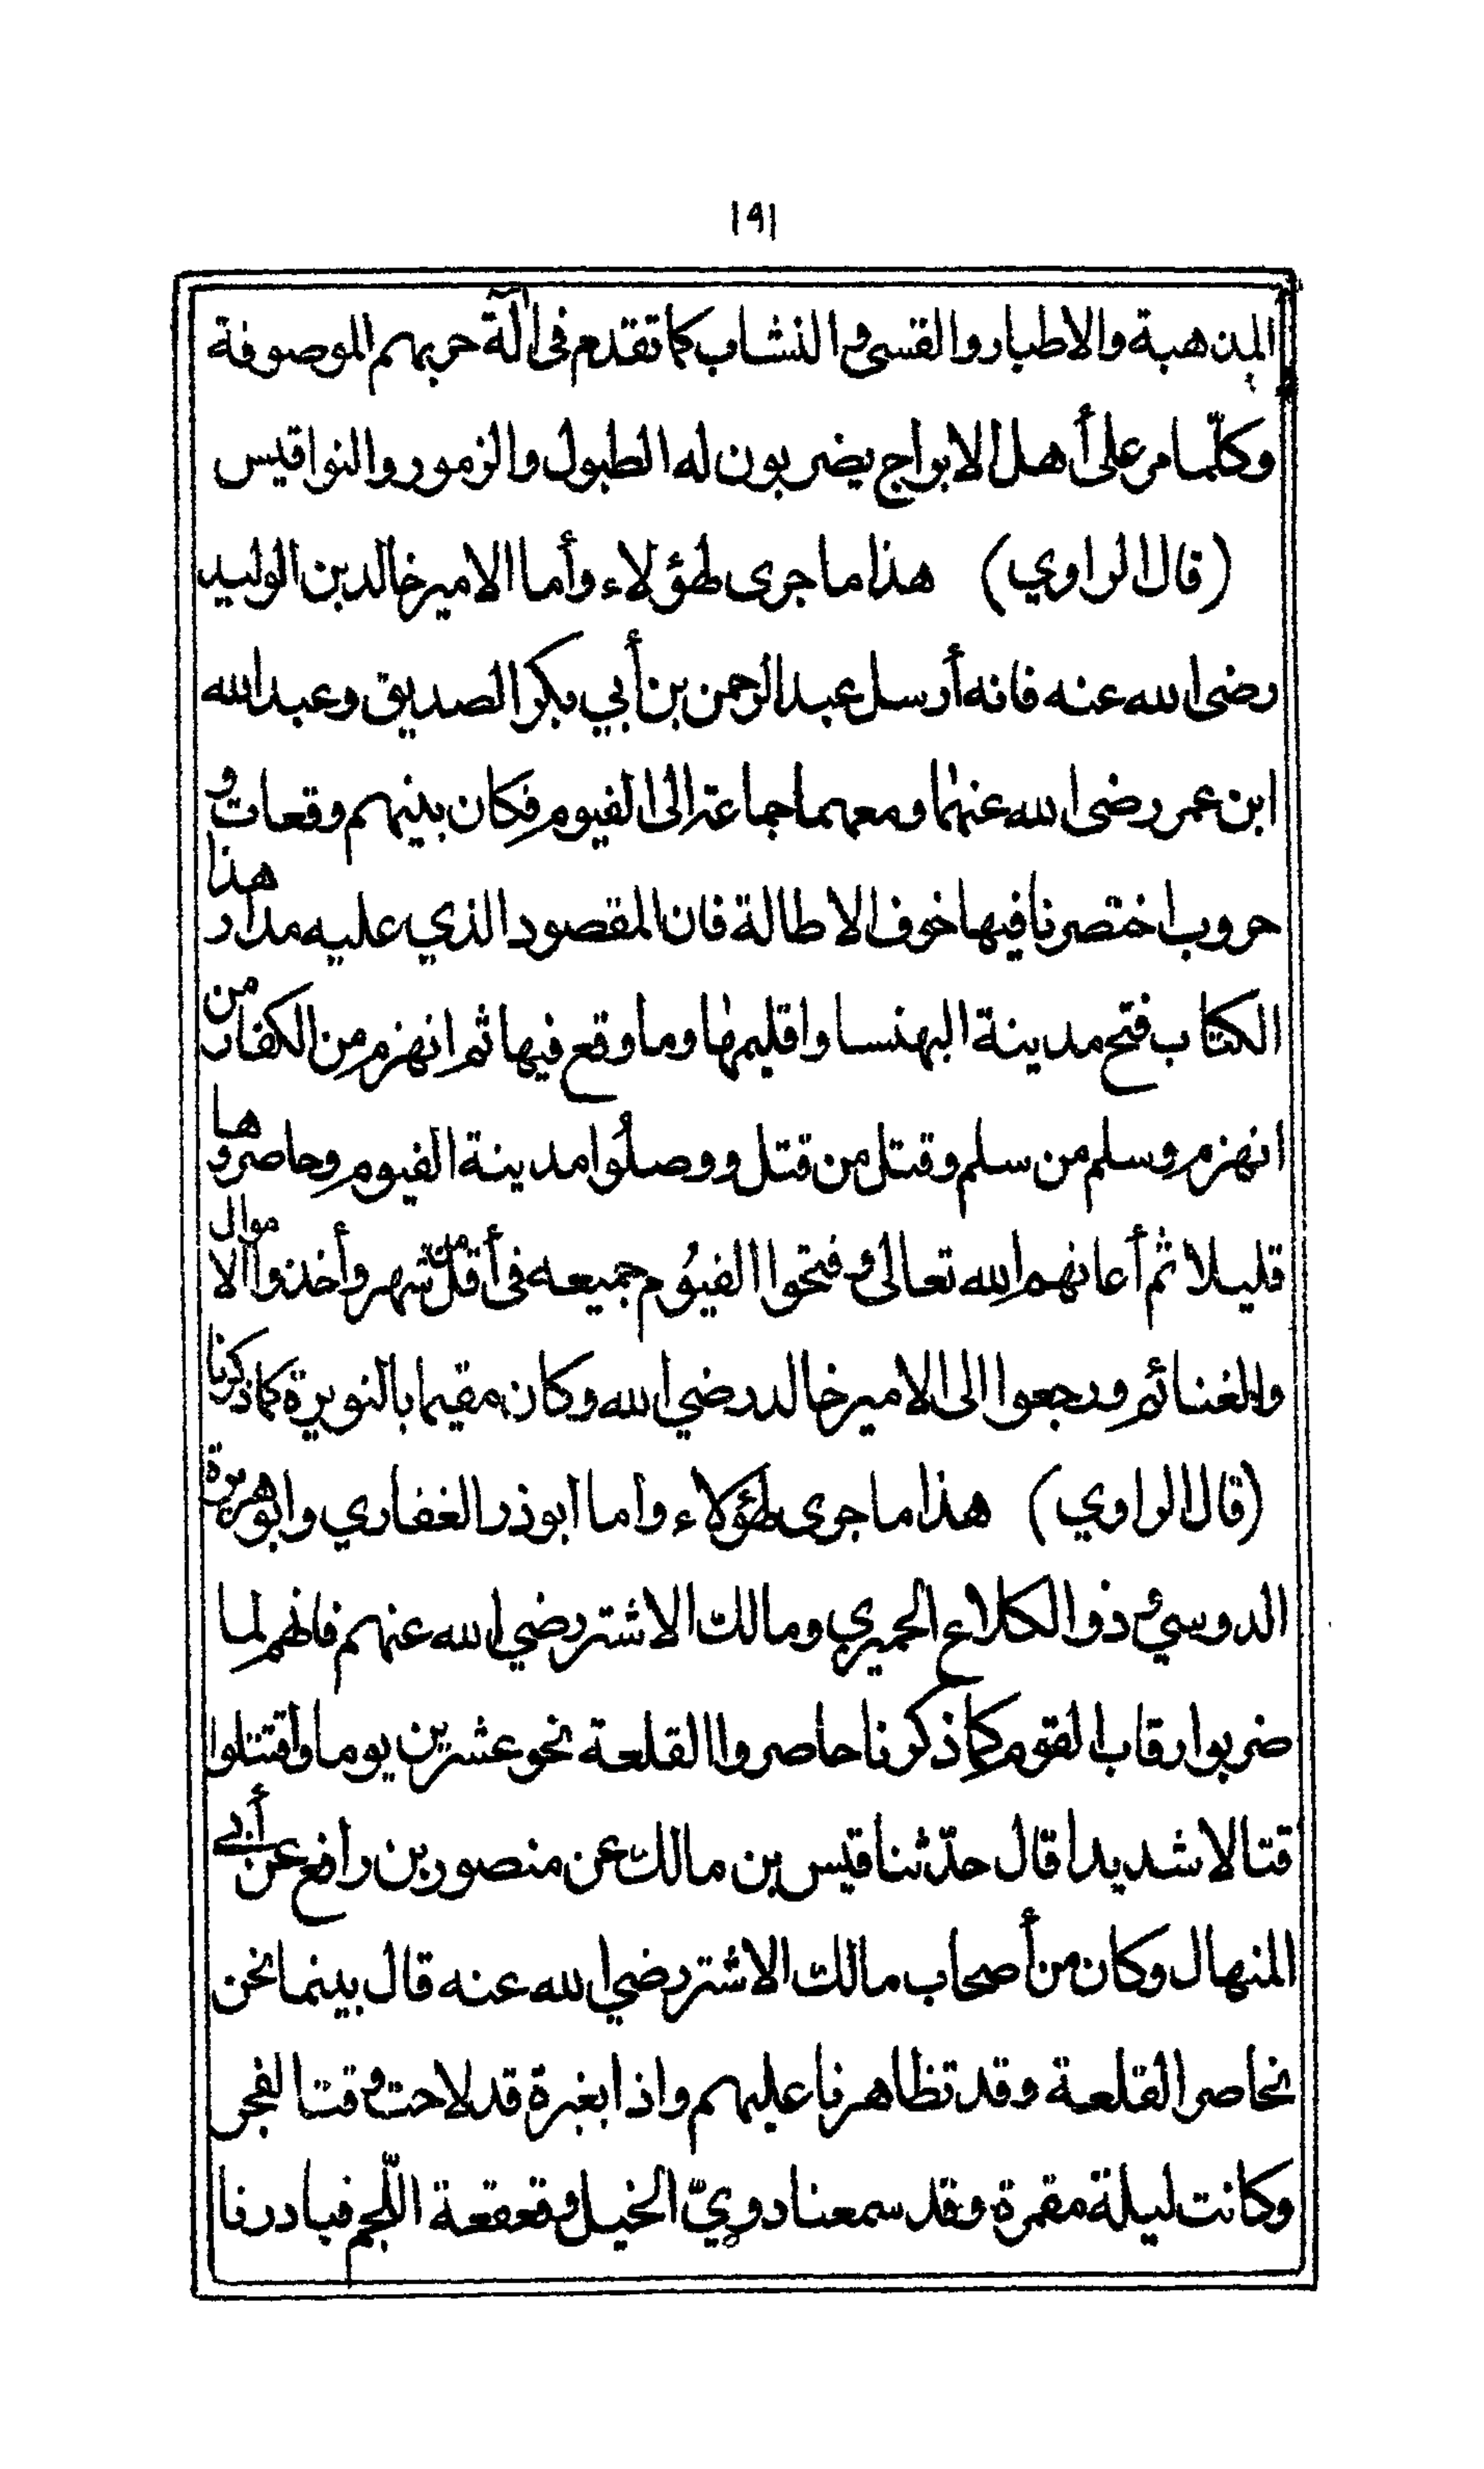 ١٩١
المذهبة والاطبار والقسى والنشاب كما تقدم فى آلة حربهم الموصوفة
وكلّما مر على أهل الابراج يضربون له الطبول والزمور والنواقيس
(قال الراوي) هذا ما جرى لهؤلاء وأما الامير خالد بن الوليد
رضى الله عنه فانه أرسل عبد الرحمن بن أبي بكر الصديق وعبد الله
ابن عمر رضى الله عنهما ومعهما جماعة الى الفيوم فكان بينهم وقعات و
حروب اختصرنا فيها خوف الاطالة فان المقصود الذي عليه مدار هذا
الكتاب فتح مدينة البهنسا واقليمها وما وقع فيها ثم انهزم من الكفار من
انهزم وسلم من سلم وقتل من قتل ووصلُوا مدينة الفيوم وحاصروها
قليلا ثم أعانهم الله تعالى وفتحوا الفيُوم جميعه فى أقل من شهر وأخذوا الاموال
والغنائم ورجعوا الى الامير خالد رضي الله وكان مقيما بالنويرة كما ذكرنا
(قال الراوي) هذا ما جرى لهؤلاء واما ابوذر الغفاري وابوهريرة
الدوسي وذو الكلاع الحميري ومالك الاشتر رضي الله عنهم فانهم لما
ضربوا رقاب القوم كما ذكرنا حاصروا القلعة نحو عشرين يوما واقتتلوا
قتالا شديدا قال حدّثنا قيس بن مالك عن منصور بن رافع عن أبي
المنهال وكان من أصحاب مالك الاشتر رضي الله عنه قال بينما نحن
نحاصر القلعة وقد تظاهرنا عليهم واذا بغبرة قد لاحت وقت الفجر
وكانت ليلة مقمرة وقد سمعنا دويّ الخيل وقعقعة اللّجم فبادرنا